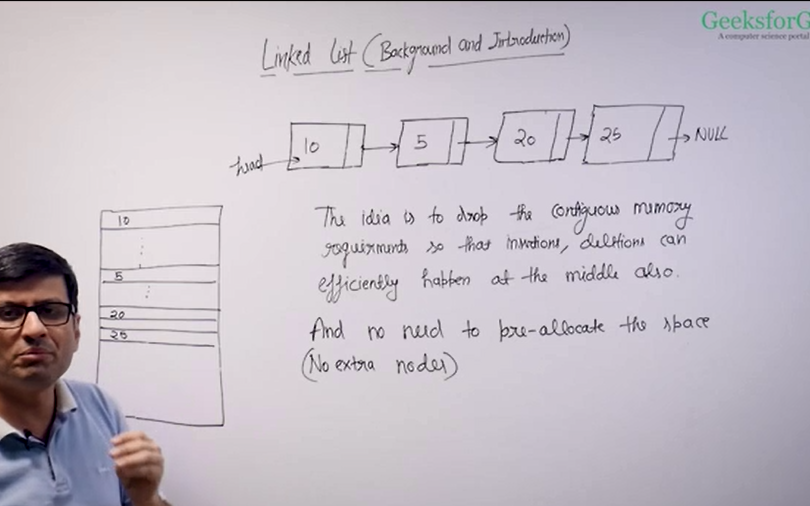 GeeksforG
A computer science portal
Linked List (Background and Introduction)
head 10 5 20 25 NULL
10
5
20
25
The idia is to drop the contiguous memory
requirments so that insertions, deletions can
efficiently happen at the middle also.
And no need to pre-allocate the space
(No extra nodes)